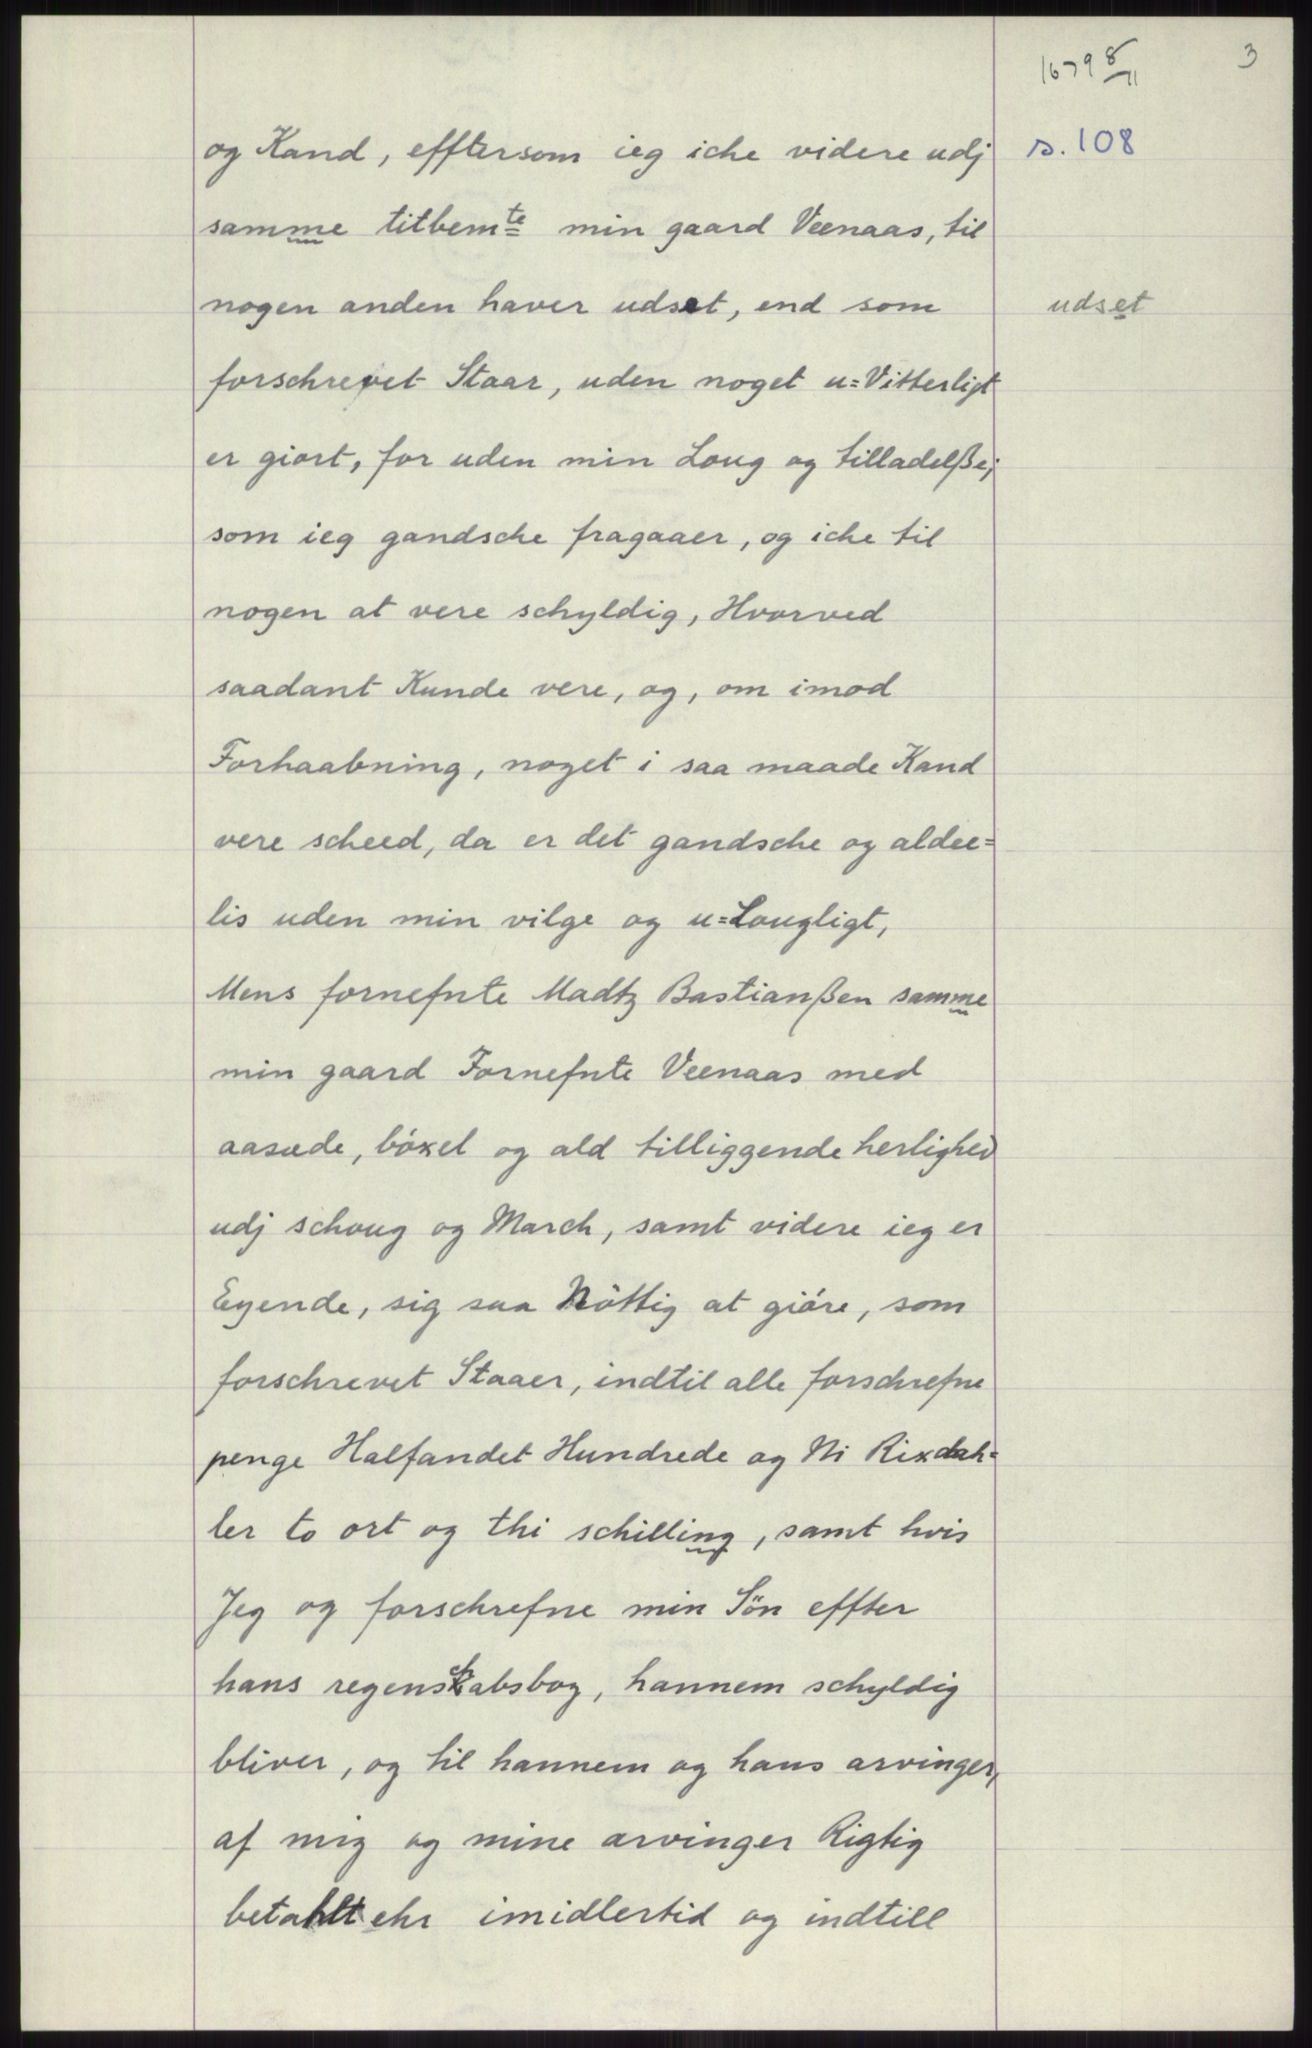 1679 8/11
3
og Kand, efftersom ieg iche videre udj
s. 108
samme titbemte min gaard Veenaas, til
nogen anden haver udset, end som
udset
forschrevet Staar, uden noget u=Vitterligt
er giort, for uden min Loug og tilladelße;
som ieg gandsche fragaaer, og iche til
nogen at vere schyldig, Hvorved
saadant Kunde vere, og, om imod
Forhaabning, noget i saa maade Kand
vere scheed, da er det gandsche og aldee=
lis uden min vilge og u=Lougligt,
Mens fornefnte Madtz Bastianßen samme
min gaard Fornefnte Veenaas med
aasæde, böxel og ald tilliggende herlighed
udj schoug og March, samt videre ieg er
Eyende, sig saa Nöttig at giöre, som
forschrevet Staaer, indtil alle forschrefne
penge Halfandet Hundrede og Ni Rixdah=
ler to ort og thi schilling, samt hvis
Jeg og forschrefne min Sön effter
hans regenschabsbog, hannem schyldig
bliver, og til hannem og hans arvinger,
af mig og mine arvinger Rigtig
betahlt ehr imidlertid og indtill